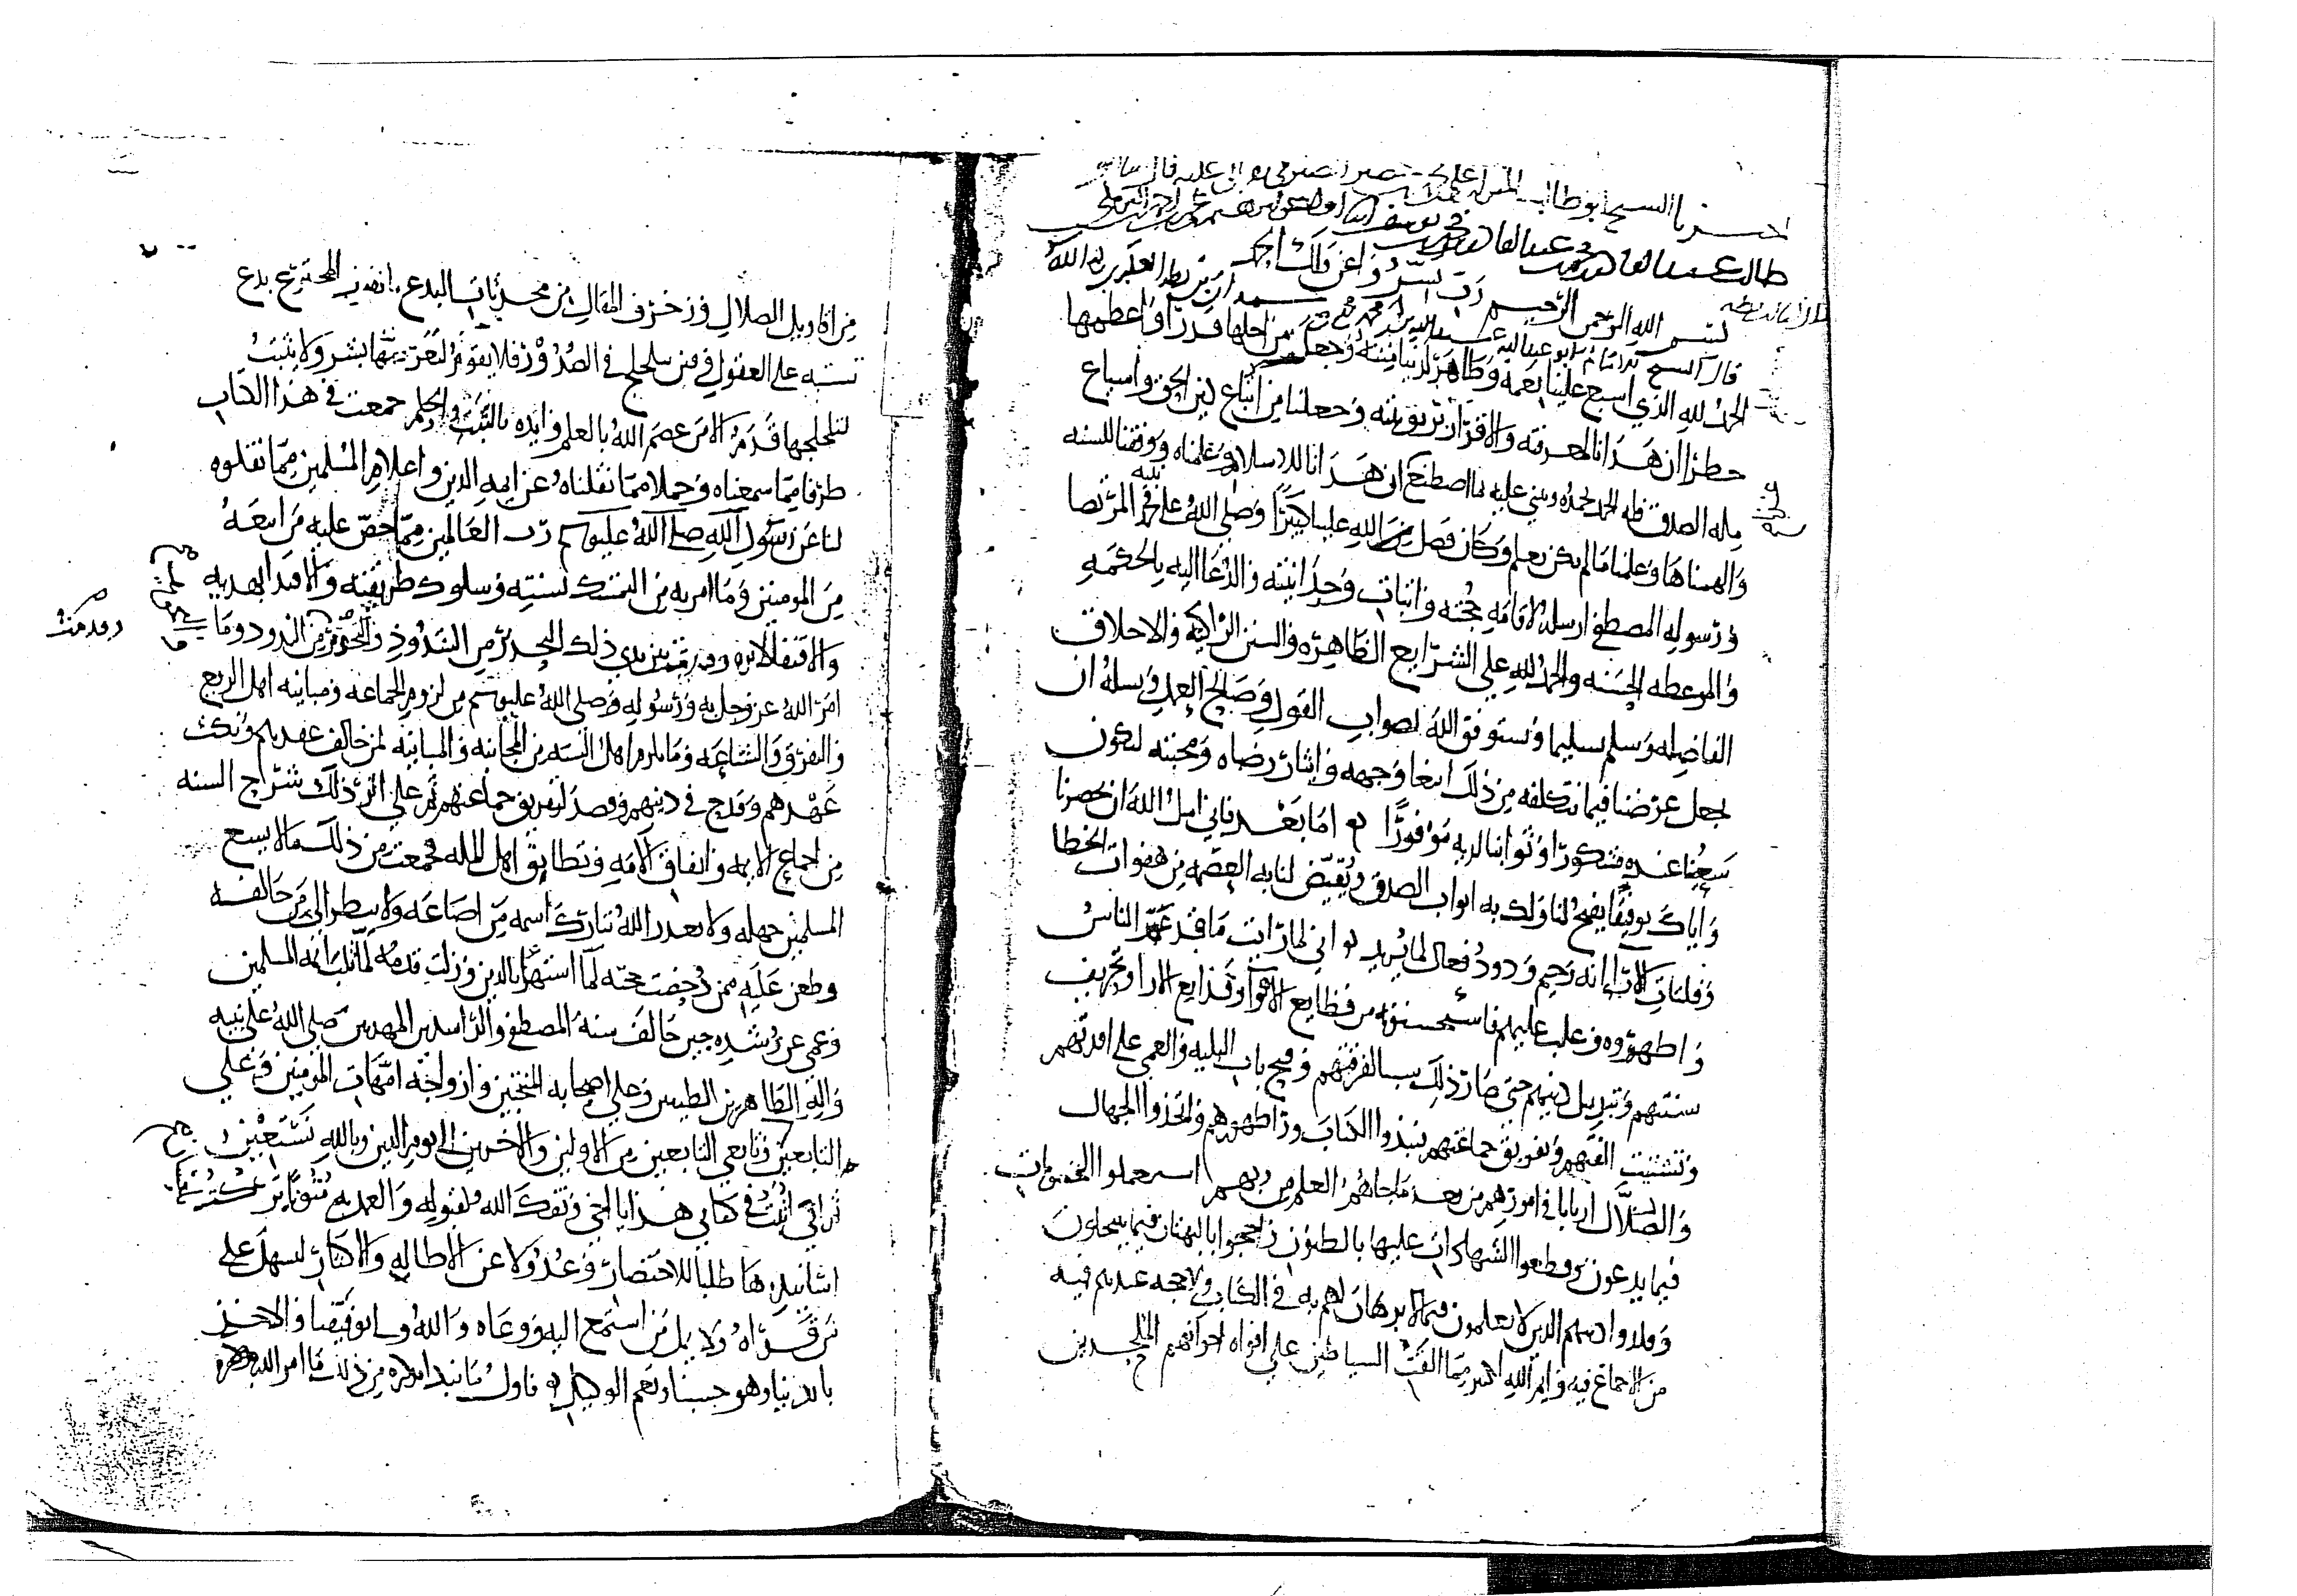 اخبرنا الشيخ ابو طالب
طالب عبد القادر بن محمد بن عبد القادر بن محمد بن يوسف
بسم الله الرحمن الرحيم رب يسر واعن
قال الشيخ الامام ابو عبد الله عبيد الله بن محمد بن محمد بن حمدان بن بطه العكبري رحمه الله
الحمد لله الذي اسبغ علينا نعمه وظاهر لدينا مننه وجعل من اجلها قدرا واعظمها
خطرا ان هدانا لمعرفته والاقرار بربوبيته وجعلنا من اتباع دين الحق واشياع
مله الصدق فله الحمد نحمده ونثني عليه بما اصطنع ان هدانا للاسلام وعلمناه ووفقنا للسنه
والهمناها وعلمنا ما لم نكن نعلم وكان فضل الله علينا كبيرا وصلى الله على محمد نبيه المرتضا
ورسوله المصطفى ارسله لاقامه حجته واثبات وحدانيته والدعا اليه بالحكمه
والموعظه الحسنه والحمد لله على الشرايع الظاهره والسنن الزاكيه والاخلاق
الفاضله وسلم تسليما ونستوفق الله لصواب القول وصالح العمل ونسله ان
يجعل غرضنا فيما نتكلفه من ذلك ابتغا وجهه وايثار رضاه ومحبته ليكون
سعينا عنده مشكورا وثوابنا لديه موفورا اما بعد فاني اسل الله ان يحضرنا
واياك توفيقا يفتح لنا ولك به ابواب الصدق ويقيض لنا به العصمه من هفوات الخطا
وفلتات الارا انه رحيم ودود فعال لما يريد اني لما رايت ما قد عم الناس
واظهروه وغلب عليهم فاستحسنوه من فظايع الاهوا وقذايع الارا وتحريف
سنتهم وتبديل دينهم حتى صار ذلك سببا لفرقتهم وفتح باب البليه والعمى على افئدتهم
وتشتيت الفتهم وتفريق جماعتهم فنبذوا الكتاب ورا ظهورهم واتخذوا الجهال
والضلال اربابا في امورهم من بعد ما جاهم العلم من ربهم استعملوا الخصومات
فيما يدعون وقطعوا الشهادات عليها بالظنون واحتجوا بالبهتان فيما ينتحلون
وقلدوا دينهم الذين لا يعلمون فيما لا برهان لهم به في الكتاب ولا حجه عندهم فيه
من الاجماع فيه وايم الله لكثير مما القت الشياطين على افواه اخوانهم الملحدين
من اقاويل الضلال وزخرف المقال من محدثات البدع
تشتبه على العقول وفتن تتلجلج في الصدور فلا يقوم لتعرضها بشر ولا يثبت
لتلجلجها قدم الا من عصم الله بالعلم وايده بالتثبت والحلم جمعت في هذا الكتاب
طرفا مما سمعناه وجملا مما نقلناه عن ايمه الدين واعلام المسلمين مما نقلوه
لنا عن رسول الله صلى الله عليه وسلم رب العالمين مما حض عليه من اتبعه
من المومنين وما امر به من التمسك بسنته وسلوك طريقته والاقتدا بهديه
والاقتفا لاثره وقدمت بين يدي ذلك التحذير من الشذوذ والتخويف من الندود وما
امر الله عز وجل به ورسوله وصلى الله عليه وسلم من لزوم الجماعه ومباينه اهل الزيغ
والتفرق والشناعه وما يلزم اهل السنه من المجانبه والمباينه لمن خالف عقدهم ونكث
عهدهم وقدح في دينهم وقصد لتفريق جماعتهم ثم على اثر ذلك شرح السنه
من اجماع الايمه واتفاق الامه وتطابق اهل المله فجمعت من ذلك ما لا يسع
المسلمين جهله ولا يعذر الله تبارك اسمه من اضاعه ولا ينظر الى من خالفه
وطعن عليه ممن دحضت حجته لما استهزا بالدين وزلت قدمه لما ثلب ايمه المسلمين
وعمي عن رشده حين خالف سنه المصطفى والراشدين المهديين صلى الله على نبيه
واله الطاهرين الطيبين وعلى اصحابه المنتخبين وازواجه امهات المومنين وعلى
التابعين وتابعي التابعين من الاولين والاخرين الى يوم الدين وبالله نستعين
ثم اني اثبت في كتابي هذا يا اخي وفقك الله لقبوله والعمل به متونا تركت
اسانيدها طلبا للاختصار وعدولا عن الاطاله والاكثار ليسهل على
من قراه ولا يمل من استمع اليه ووعاه والله ولي توفيقنا والاخذ
بايدينا وهو حسبنا ونعم الوكيل فاول ما نبدا بذكره من ذلك ما امر الله